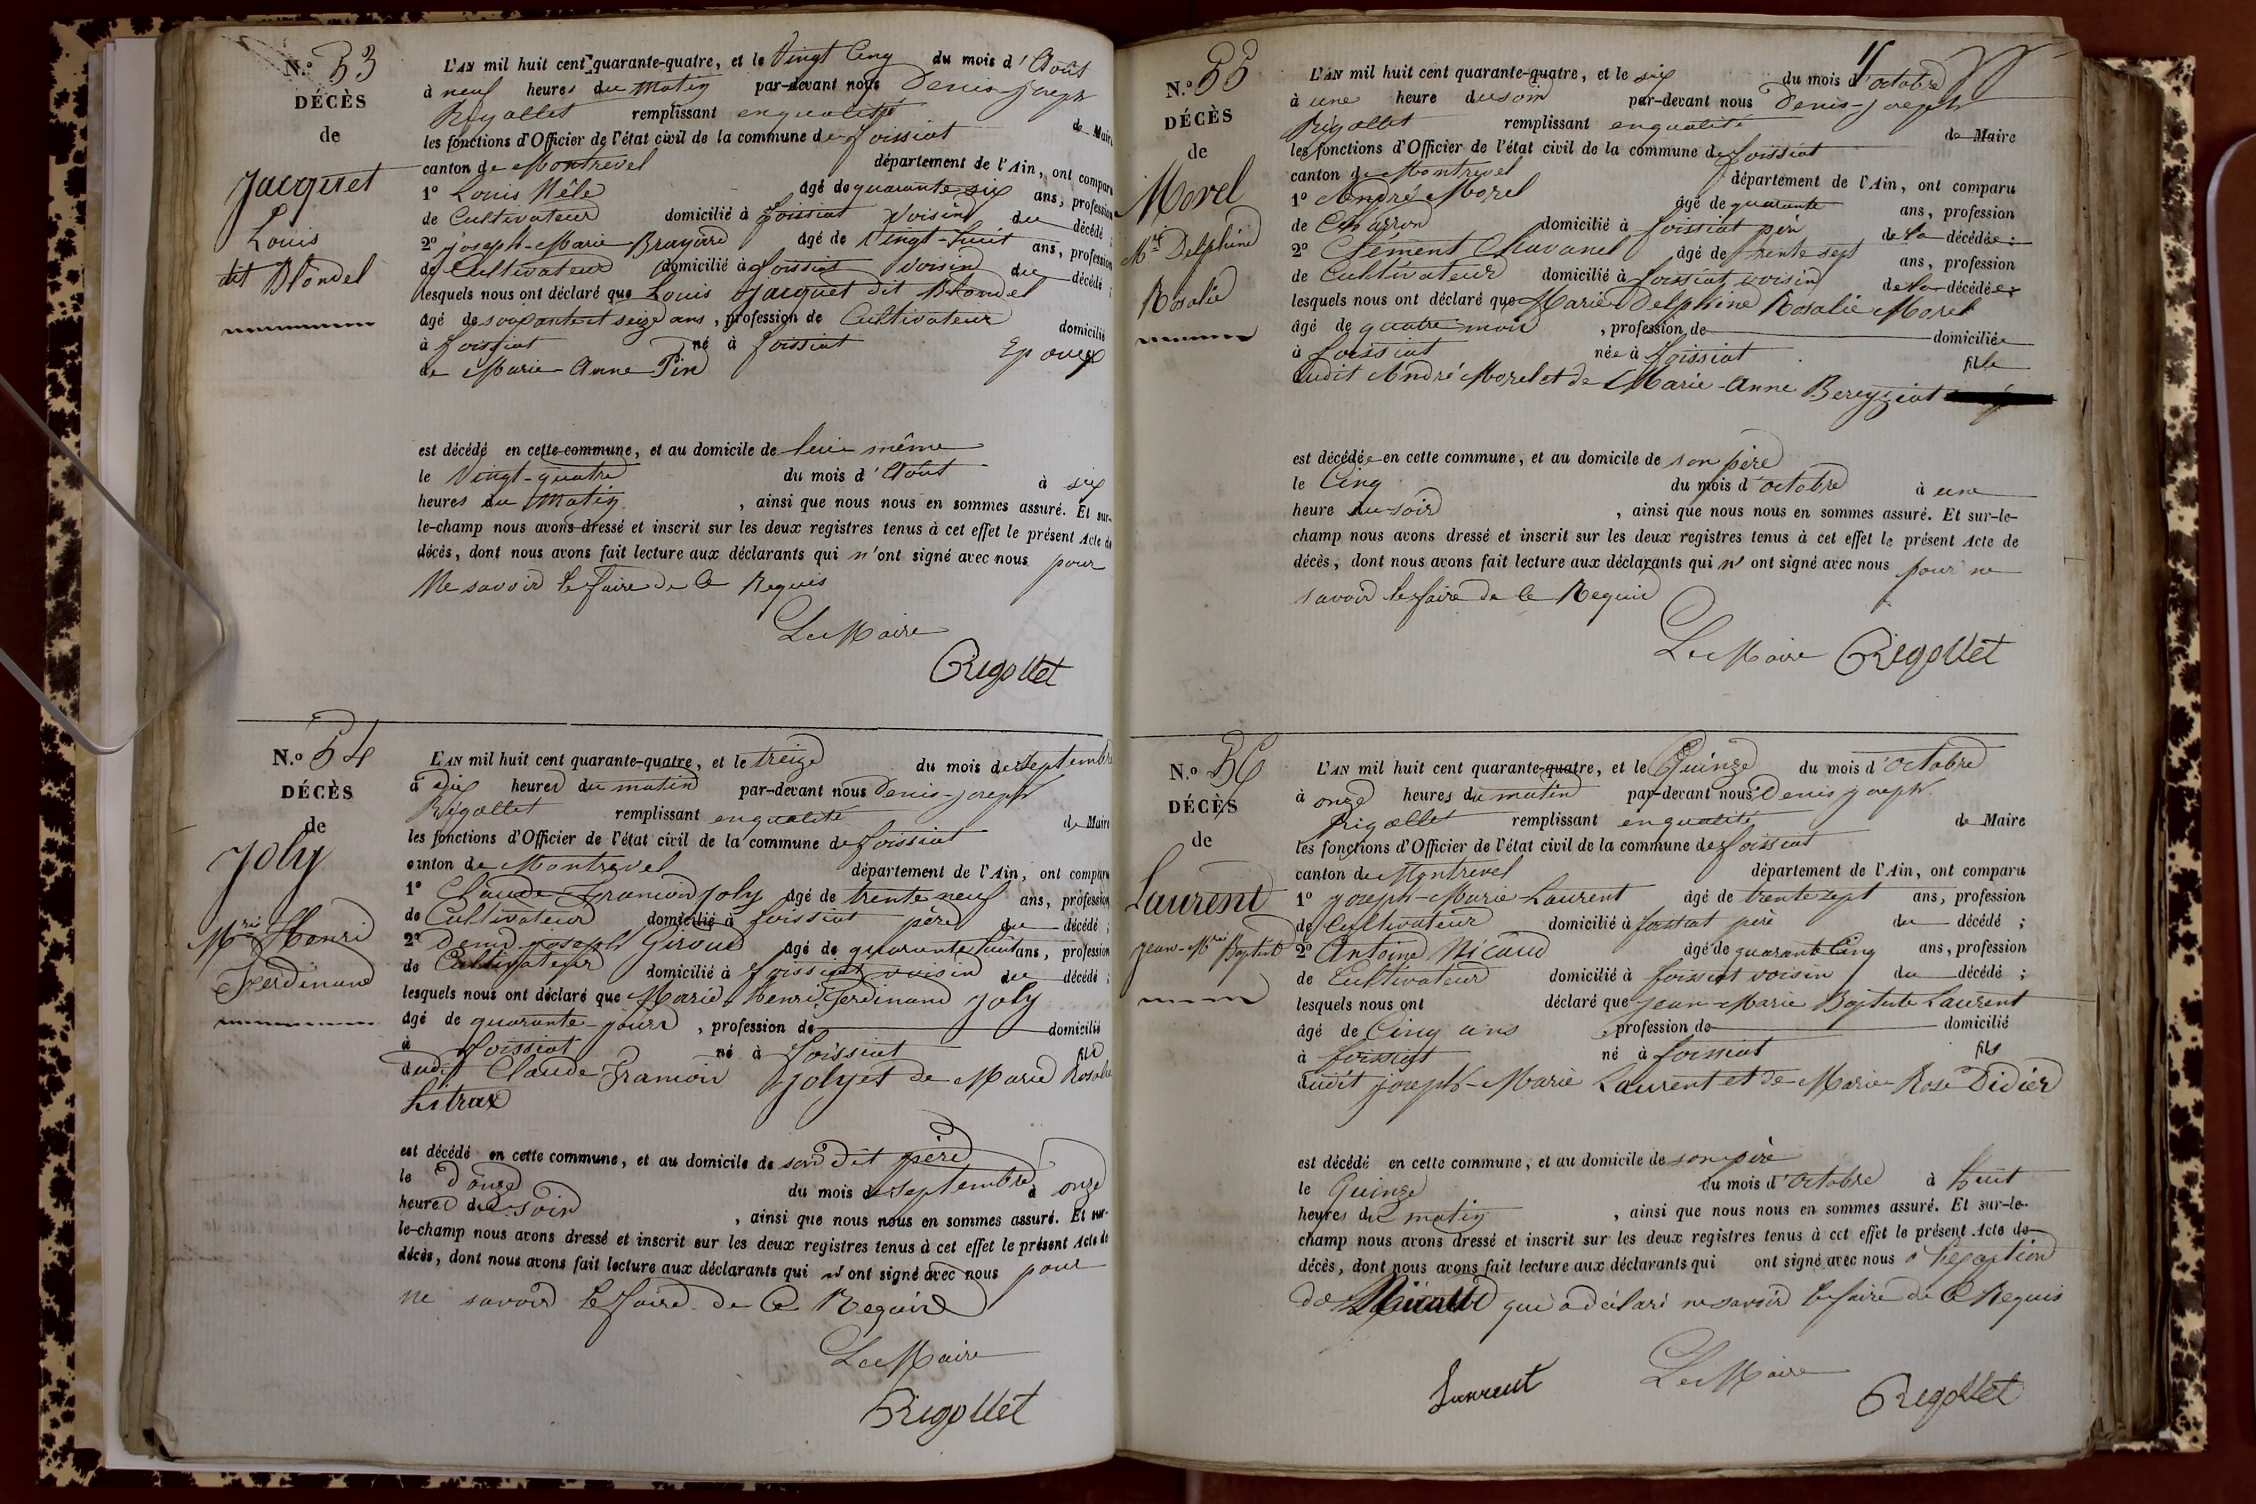 N.° 53
DÉCÈS
de
Jacquet
Louis
dit Blondel
L'AN mil huit cent quarante-quatre, et le Vingt Cinq du mois d'Août
à neuf heures du Matin par-devant nous Denis-joseph
Rigollet remplissant en qualité de Maire
les fonctions d'Officier de l'état civil de la commune de foissiat
canton de Montrevel département de l'Ain, ont comparu
1° Louis Nêle âgé de quarante six ans, profession
de Cultivateur domicilié à foissiat Voisin du décédé ;
2° joseph-Marie Brayard âgé de Vingt-huit ans, profession
de Cultivateur domicilié à foissiat Voisin du décédé ;
lesquels nous ont déclaré que Louis Jacquet dit Blondel
âgé de soixante et seize ans, profession de Cultivateur domicilié
à foissiat né à foissiat Epoux
de Marie-Anne Pin
est décédé en cette commune, et au domicile de lui même
le Vingt-quatre du mois d'Août à six
heures du Matin, ainsi que nous nous en sommes assuré. Et sur-
le-champ nous avons dressé et inscrit sur les deux registres tenus à cet effet le présent Acte de
décès, dont nous avons fait lecture aux déclarants qui n'ont signé avec nous pour
Ne savoir le faire de ce Requis
Le Maire
Rigollet
N.° 54
DÉCÈS
de
Joly
Mrie Henri
Ferdinand
L'AN mil huit cent quarante-quatre, et le treize du mois de septembre
à dix heures du matin par-devant nous Denis-joseph
Rigollet remplissant en qualité de Maire
les fonctions d'Officier de l'état civil de la commune de foissiat
canton de Montrevel département de l'Ain, ont comparu
1° Claude-Francois Joly âgé de trente neuf ans, profession
de Cultivateur domicilié à foissiat père du décédé ;
2° Denis joseph Giroud âgé de quarante huit ans, profession
de Cultivateur domicilié à foissiat voisin du décédé ;
lesquels nous ont déclaré que Marie Henri Ferdinand Joly
âgé de quarante-jours, profession de domicilié
à foissiat né à foissiat fils
dudit Claude Francois Joly et de Marie Rosalie
est décédé en cette commune, et au domicile de son dit père
le douze du mois de septembre à onze
heures du soir, ainsi que nous nous en sommes assuré. Et sur-
le-champ nous avons dressé et inscrit sur les deux registres tenus à cet effet le présent Acte de
décès, dont nous avons fait lecture aux déclarants qui n'ont signé avec nous pour
ne savoir le faire de ce Requis
Le Maire
Rigollet
N.° 55
DÉCÈS
de
Morel
Mrie Delphine
Rosalie
L'AN mil huit cent quarante-quatre, et le six du mois d'octobre
à une heure du soir par-devant nous Denis-joseph
Rigollet remplissant en qualité de Maire
les fonctions d'Officier de l'état civil de la commune de foissiat
canton de Montrevel département de l'Ain, ont comparu
1° André Morel âgé de quarante ans, profession
de Charron domicilié à foissiat père de la décédée ;
2° Clément Chavanel âgé de trente sept ans, profession
de Cultivateur domicilié à foissiat voisin de la décédée ;
lesquels nous ont déclaré que Marie Delphine Rosalie Morel
âgé de quatre mois, profession de domiciliée
à foissiat née à foissiat fille
dudit André Morel et de Marie-Anne Bereyziat
est décédée en cette commune, et au domicile de son père
le Cinq du mois d'octobre à une
heure du soir, ainsi que nous nous en sommes assuré. Et sur-le-
champ nous avons dressé et inscrit sur les deux registres tenus à cet effet le présent Acte de
décès, dont nous avons fait lecture aux déclarants qui n'ont signé avec nous pour ne
savoir le faire de ce Requis
Le Maire Rigollet
N.° 56
DÉCÈS
de
Laurent
jean-Mrie Baptiste
L'AN mil huit cent quarante-quatre, et le Quinze du mois d'octobre
à onze heures du matin par-devant nous Denis joseph
Rigollet remplissant en qualité de Maire
les fonctions d'Officier de l'état civil de la commune de foissiat
canton de Montrevel département de l'Ain, ont comparu
1° joseph-Marie Laurent âgé de trente sept ans, profession
de Cultivateur domicilié à foissiat père du décédé ;
2° Antoine Nicaud âgé de quarante Cinq ans, profession
de Cultivateur domicilié à foissiat voisin du décédé ;
lesquels nous ont déclaré que jean-Marie Baptiste Laurent
âgé de Cinq ans, profession de domicilié
à foissiat né à foissiat fils
dudit joseph-Marie Laurent et de Marie Rose Didier
est décédé en cette commune, et au domicile de son père
le Quinze du mois d'octobre à huit
heures du matin, ainsi que nous nous en sommes assuré. Et sur-le-
champ nous avons dressé et inscrit sur les deux registres tenus à cet effet le présent Acte de
décès, dont nous avons fait lecture aux déclarants qui ont signé avec nous à l'exception
de qui a déclaré ne savoir le faire de ce Requis
Laurent Le Maire Rigollet